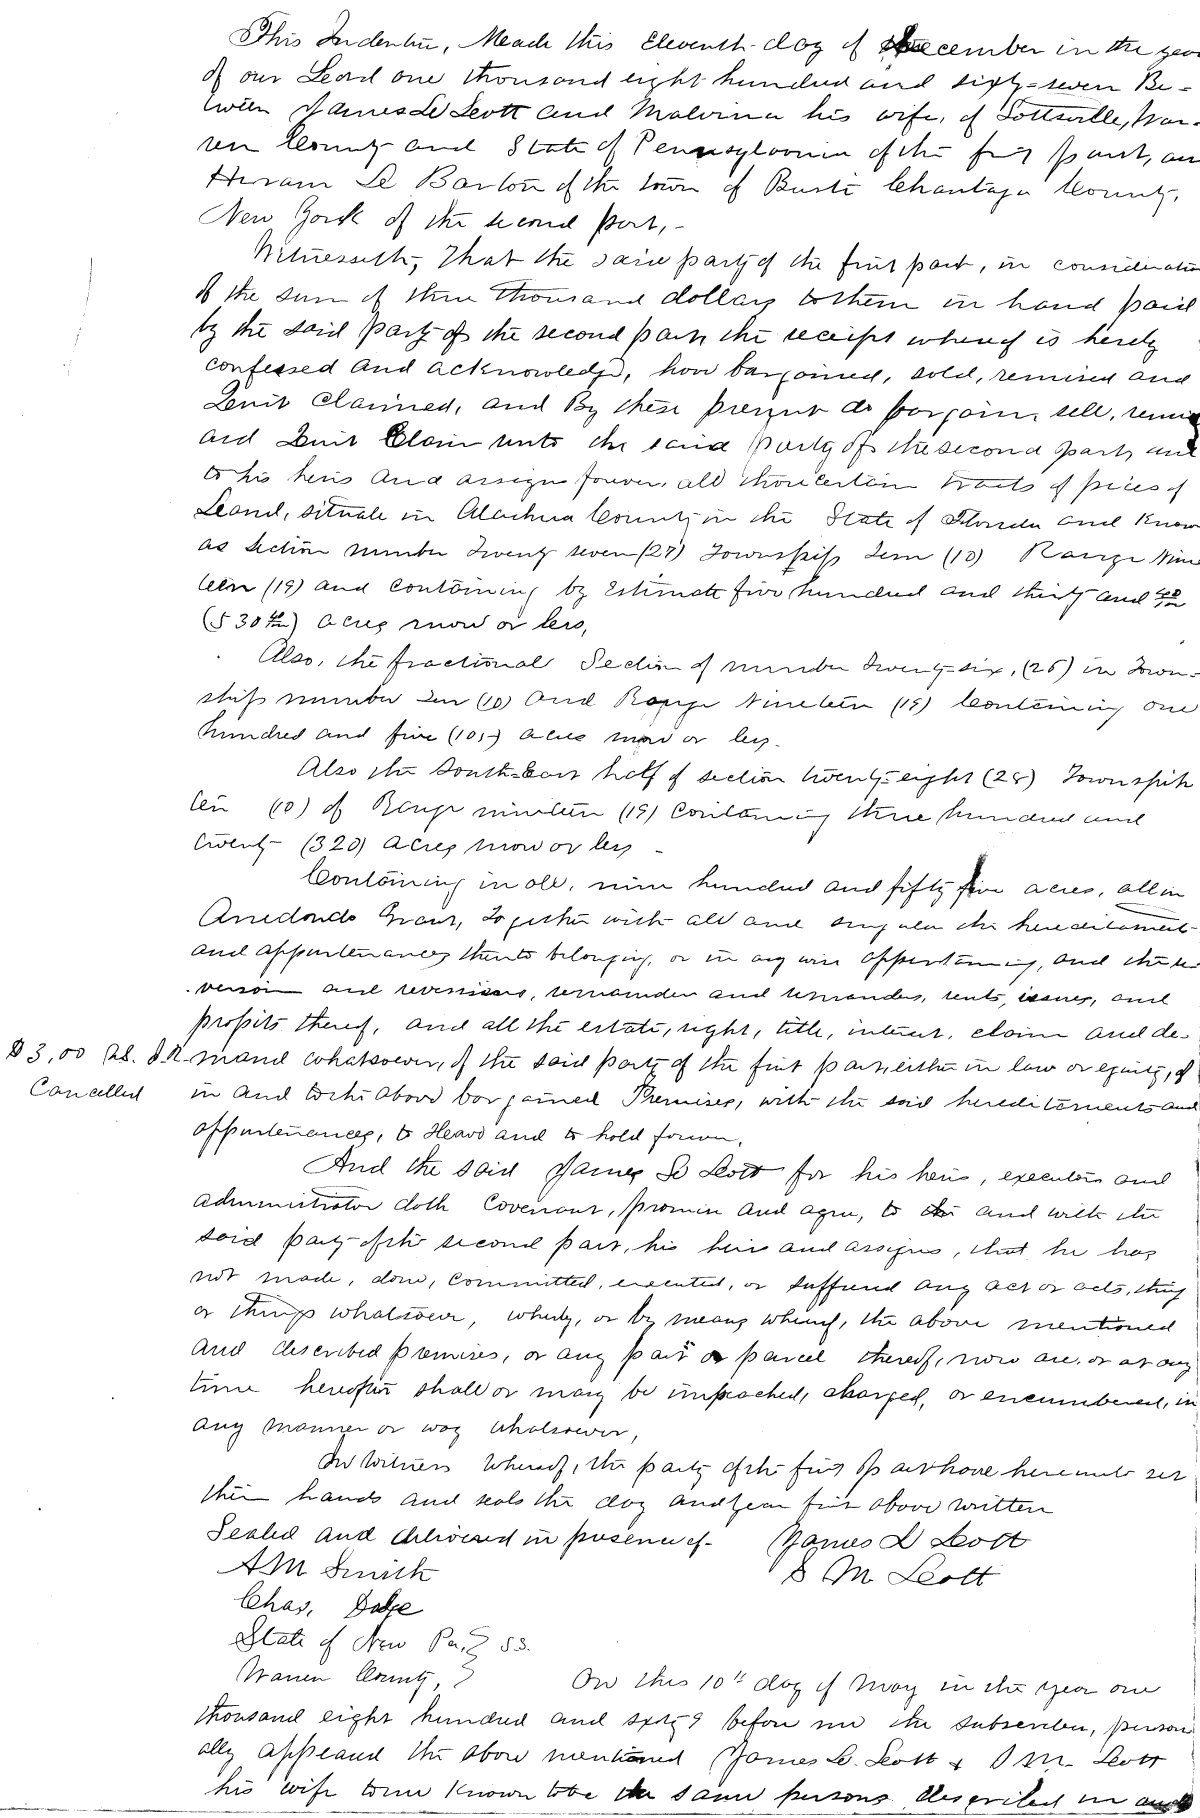 This Indenture, Meade this Eleventh day of December in the year
of our Leord one thousand eight hundred and sixty-seven Be-
tween James L Lott and Malvina his wife, of Lottsville, War-
ren County and State of Pennsylvania of the first part, and
Hiram Le Barton of the town of Busti Chautaqu County,
New York of the second part,-
Witnesseth, That the said party of the first part, in consideration
of the sum of three thousand dollars to them in hand paid
by the said party of the second part, the receipt whereof is hereby
confessed and acknowledged, have bargained, sold, remised and
Quit Claimed, and By these present do bargain, sell, remise
and Quit Claim unto the said party of the second part, and
to his heirs and assigns forever, all those certain tracts of pieces of
Leand, situate in Alachua County in the State of Florida and Known
as Section number Twenty seven (27) Township Ten (10) Range Nine
teen (19) and containing by Estimate five hundred and thirty and 40/100
(530 40/100) acres more or less,
Also, the fractional Section of number Twenty-six, (26) in Town-
ship number Ten (10) and Range Nineteen (19) Containing one
hundred and five (105) acres more or less.
Also the South-East half of section twenty-eight (28) Township
ten (10) of Range nineteen (19) Containing three hundred and
twenty- (320) acres more or less -
Containing in all, nine hundred and fifty five acres, all in
Arredondo Grant, Together with all and singular the hereditament
and appurtenances thereto belonging, or in any wise appertaining, and the re
version and reversions, remainder and remainders, rents, issues, and
profits thereof, and all the estate, right, title, interest, claim and de-
$3,00 U.S. I.R. mand whatsoever, of the said party of the first part, either in law or equity, of
Cancelled in and to the above bargained Premises, with the said hereditaments and
appurtenances, to Have and to hold forever,
And the said James L Lott for his heirs, executors and
administrator doth Covenant, promise and agree, to the and with the
said party of the second part, his heirs and assigns, that he has
not made, done, committed, executed, or suffered any act or acts, thing
or things whatsoever, whereby, or by means whereof, the above mentioned
and described premises, or any part or parcel thereof, now are, or at any
time hereafter shall or may be impeached, charged, or encumbered, in
any manner or way whatsoever,
In Witness Whereof, the party of the first part have hereunto set
their hands and seals the day and year first above written
Sealed and delivered in presence of- James L Lott
A M Smith S M Lott
Chas. Dake
State of New Pa, } SS.
Warren County, } On this 10th day of May in the year one
thousand eight hundred and sixty 9 before me the subscriber, person
ally appeared the above mentioned James L. Lott & S M. Lott
his wife to me Known to be the same persons described in and